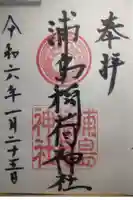 奉拝
浦島稲荷神社
浦島
神社
令和六年一月二十五日